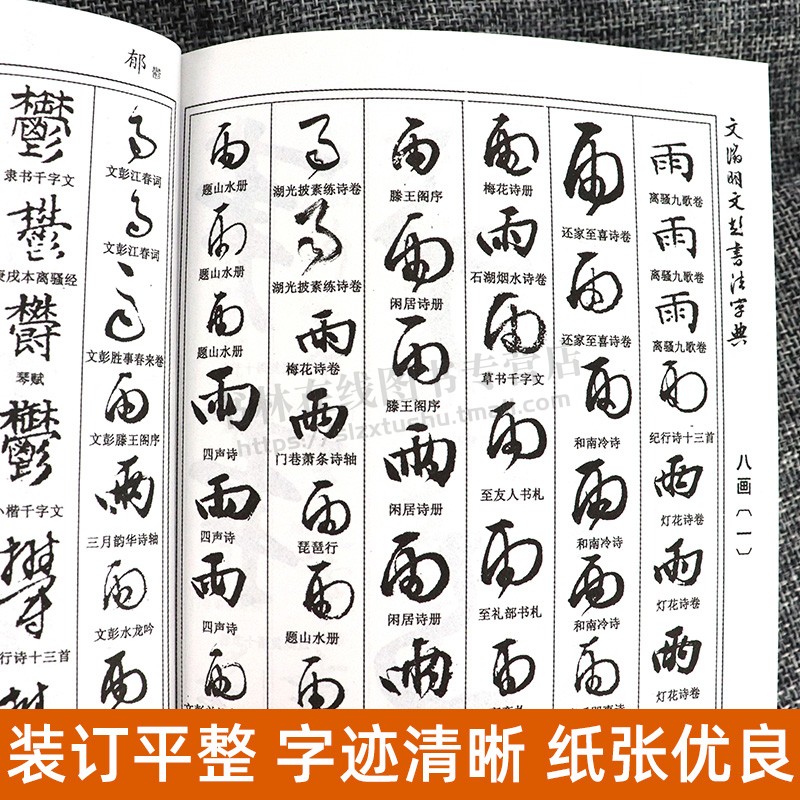 文徵明文彭書法字典
八画〔一〕
雨
离骚九歌卷
雨
离骚九歌卷
雨
离骚九歌卷
雨
纪行诗十三首
雨
灯花诗卷
雨
灯花诗卷
雨
灯花诗卷
雨
还家至喜诗卷
雨
还家至喜诗卷
雨
和南冷诗
雨
和南冷诗
雨
和南冷诗
雨
雨
梅花诗册
雨
石湖烟水诗卷
雨
草书千字文
雨
至友人书札
雨
至礼部书札
雨
雨
滕王阁序
雨
闲居诗册
雨
滕王阁序
雨
闲居诗册
雨
闲居诗册
雨
雨
湖光披素练诗卷
雨
湖光披素练诗卷
雨
梅花诗卷
雨
门巷萧条诗轴
雨
琵琶行
雨
题山水册
雨
雨
题山水册
雨
题山水册
雨
题山水册
雨
四声诗
雨
四声诗
雨
四声诗
雨
郁 鬱
雨
文彭江春词
雨
文彭江春词
雨
文彭胜事春来卷
雨
文彭滕王阁序
雨
三月韵华诗轴
雨
文彭水龙吟
雨
鬱
隶书千字文
鬱
庚戌本离骚经
鬱
琴赋
鬱
小楷千字文
鬱
行诗十三首
林在线图书专营店
https://slzxtushu.tmall.com
装订平整 字迹清晰 纸张优良